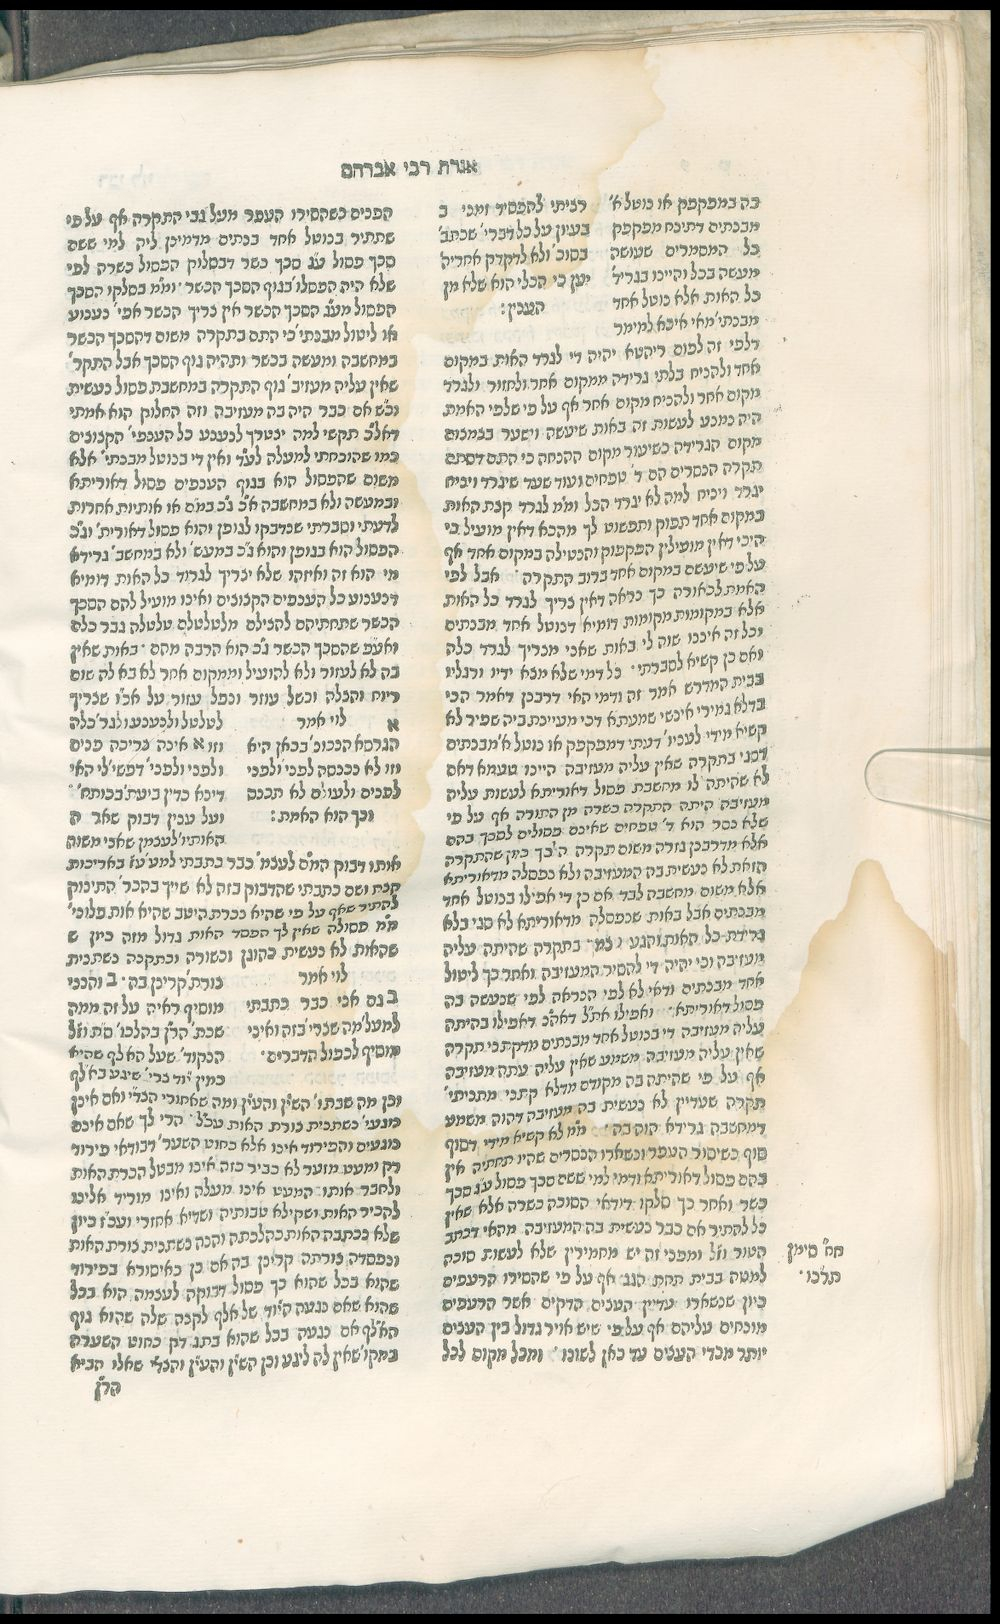 אגרת רבי אברהם
בה במפקפק או נוטל א'
מבנתים דתיכח מפקפק
כל המסמרים שעושה
מעשה בכל והיינו בגריד'
כל האות אלא נוטל אחד
מבנתי' מאי איכא למימר
רביתי להפסיד זמני ב
בעיון על כל דברי' שכתב'
בסוב' ולא לדקדק אחריה
יען כי הכלי הוא שלא מן
הענין:
דלפי זה לפום ריהטא יהיה די לגרד האות במקום
אחד ולהניח בלתי גרידה ממקום אחר ולחזור ולגרד
מקום אחר ולהניח מקום אחר אף על פי שלפי האמת
היה נמנע לעשות זה באות שיעשה וישער בצמצום
מקום הגרידה כשיעור מקום ההנחה כי התם דסתם
תקרה הנסרים הם ד' טפחים ועוד שעד שיגרד ויניח
יגרד ויניח למה לא יגרד הכל ומ"מ לגרד קצת האות
במקום אחד תפוק ותפשוט לך מהכא דאין מועיל כי
היכי דאין מועילין הפקפוק והנטילה במקום אחד אף
על פי שיעשם במקום אחד ברוב התקרה · אבל לפי
האמת לכאורה כך נראה דאין צריך לגרד כל האות
אלא במקומות מקומות דומיא דנוטל אחד מבנתים
וכל זה איננו שוה לי באות שאני מצריך לגרד כלה
ואם כן קשיא לסברתי · כל דמי שלא מצא ידיו ורגליו
בבית המדרש אמר זה ודמי האי דרבנן דאמר הכי
בדלא גמירי אינשי שמעתא דכי מעיינת ביה שפיר לא
קשיא מידי לענינו' דעתי דמפקפק או נוטל א' מבנתים
דסגי בתקרה שאין עליה מעזיבה היינו טעמא דאם
לא שהיתה לו מחשבת פסול דאוריתא לעשות עליה
מעזיבה היתה התקרה כשרה מן התורה אף על פי
שלא נסר הוא ד' טפחים שאינם פסולים לסכך בהם
אלא מדרבנן גזרה משום תקרה הלכך כיון שהתקרה
הזאת לא נעשית בה המעזיבה ולא נפסלה מדאוריתא
אלא משום מחשבה לבד אם כן די אפילו בנוטל אחד
מבנתים אבל באות שנפסלה מדאוריתא לא סגי בלא
גרידת כל האות והנע
מעזיבה וכי יהיה די להסיר המעזיבה ואחר כך ליטול
אחד מבנתים ודאי לא לפי הנראה לפי שנעשה בה
פסול דאוריתא · ואפילו את"ל דאה"נ דאפילו בהיתה
עליה מעזיבה די בנוטל אחד מבנתים מדקתני תקרה
שאין עליה מעזיבה משמע שאין עליה עתה מעזיבה
אף על פי שהיתה בה מקודם מדלא קתני מתניתי'
תקרה שעדיין לא נעשית בה מעזיבה דהוה משמע
דמחשבה גרידא הוה בה · מ"מ לא קשיא מידי דסוף
סוף כשיסור העפר ונשארו הנסרים שהיו תחתיה אין
בהם פסול דאוריתא ודמי למי ששם סכך פסול ע"ג סכך
כשר ואחר כך סלקו דודאי הסוכה כשרה אלא שאין
כל להתיר אם כבר נעשית בה המעזיבה מהאי דכתב
הטור וז"ל ומפני זה יש מחמירין שלא לעשות סוכה
למטה בבית תחת הגג אף על פי שהסירו הרעפים
כיון שנשארו עדיין העצים הדקים אשר הרעפים
מונחים עליהם אף על פי שיש אויר גדול בין העצים
יותר מכדי העצים עד כאן לשונו · ומכל מקום לכל
חא"ח סימן
תרכו ·
הפנים כשהסירו העפר מעל גבי התקרה אף על פי
שתתיר בנוטל אחד בנתים מדמינן ליה למי ששם
סכך פסול ע"ג סכך כשר דבסלוק הפסול כשרה לפי
שלא היה הפסלו' בגוף הסכך הכשר · ומ"מ בסלקו הסכך
הפסול מע"ג הסכך הכשר אין צריך הכשר אפי' נענוע
או ליטול מבנתי' כי התם בתקרה משום דהסכך הכשר
במחשבה ומעשה בכשר ותהיה גוף הסכך אבל התקר'
שאין עליה מעזיב' גוף התקרה במחשבת פסול נעשית
וכ"ש אם כבר היה בה מעזיבה וזה החלוק הוא אמתי
דאל"כ תקשי למה יצטרך לנענע כל הענפי' הקצוצים
כמו שהוכחתי למעלה לע"ד ואין די בנוטל מבנתי' אלא
משום שהפסול הוא בגוף הענפים פסול דאוריתא
ובמעשה ולא במחשבה א"כ ג"כ במ"ם או אותיות אחרות
לדעתי וסברתי שנדבקו לגופן והוא פסול דאורית' וג"כ
הפסול הוא בגופן והוא ג"כ במעש' ולא במחשב' גרידא
מי הוא זה ואיזהו שלא יצריך לגרוד כל האות דומיא
דנענוע כל הענפים הקצוצים ואינו מועיל להם הסכך
הכשר שתחתיהם להצילם מלטלטלם טלטלה גבר כלם
ואע"פ שהסכך הכשר ג"כ הוא הרבה מהם · באות שאין
בה לא לעזור ולא להועיל וממקום אחר לא בא לה שום
ריוח והצלה וכשל עוזר ונפל עזור על א"ו שצריך
לטלטל ולנענע ולגר' כלה
א לוי אמר
הגרסא הנכונ' בכאן היא
וזו לא נכנסה לפני' ולפני
לפנים ולעולם לא תכנס
וכך הוא האמת:
וזו א אינה צריכה פנים
ולפני ולפני' דפשי' לי האי
דינא כדין ביעת' בכותח' :
ועל ענין דבוק שאר ה
האותיו' לעצמן שאני משוה
אותו דבוק המ"ם לעצמ' כבר כתבתי למע' ע"ז באריכות
קצת ושם כתבתי שהדבוק בזה לא שייך בהכר' התינוק
להתיר שאף על פי שהיא נכרת היטב שהיא אות פלוני'
מ"מ פסולה שאין לך הפסד האות גדול מזה כיון ש
שהאות לא נעשית כהוגן וכשורה ובתקנה כשתכית
לוי אמר
ב גם אני כבר כתבתי
למעל' מה שצרי' בזה ואיני
מוסיף לכפול הדברים ·
צורת' קרינן בה · ב והנני
מוסיף ראיה על זה ממה
שכת' הר"ן בהלכו' ס"ת וז"ל
הנקוד' שעל האלף שהיא
כמין יוד צרי' שיגע בא"לף
וכן מה שבתו' הש"ין והע"ין ומה שאחורי הצד"י ואם אינן
נוגעי' כשתכית צורת האות עכ"ל · הרי לך שאם אינם
נוגעים והפירוד אינו אלא כחוט השער' דבודאי פירוד
רק ומעט מזער לא כביר כזה אינו מבטל הכרת האות
ולחבר אותו המעט אינו מעלה ואינו מוריד אלינו
להכיר האות ושקילא טבותיה ושדיא אחזרי ועכ"ז כיון
שלא נכתבה האות כהלכתה והנה כשתכית צורת האות
ונפסדה צורתה קרינן בה אם כן כאיסורא בפירוד
שהוא בכל שהוא כך פסול דבוקה לעצמה הוא בכל
שהוא שאם נגעה היוד של אלף לקצה שלה שהוא גוף
הא"לף אם נגעה בכל שהוא בתג דק כחוט השערה
במקו' שאין לה ליגע וכן הש"ין והע"ין והצד"י שאלו הביא
הר"ן